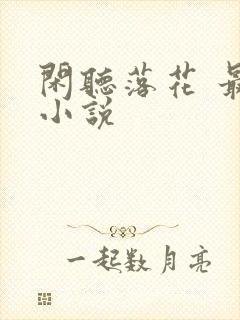 閑聽落花 最
小說
一起數月亮